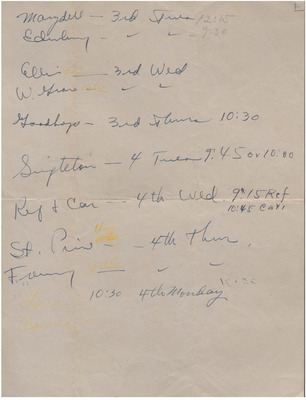 Maydell — 3rd Tues 12:15
Edinburg — " — " 9:30
Ellis — 3rd Wed
W. Grove — " "
Goodhope — 3rd Thurs 10:30
Singleton — 4 Tues 9:45 or 10:00
Ref & Car — 4th Wed 9:15 Ref
10:45 Car
St. — 4th Thur.
— " "
10:30 4th Monday